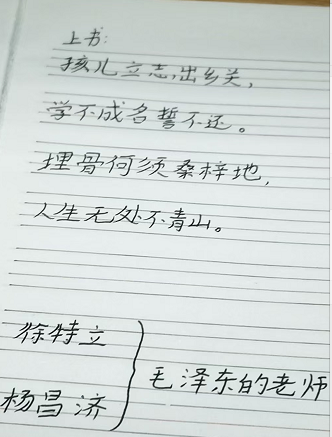 上书:
孩儿立志出乡关,
学不成名誓不还。
埋骨何须桑梓地,
人生无处不青山。
徐特立
杨昌济
毛泽东的老师